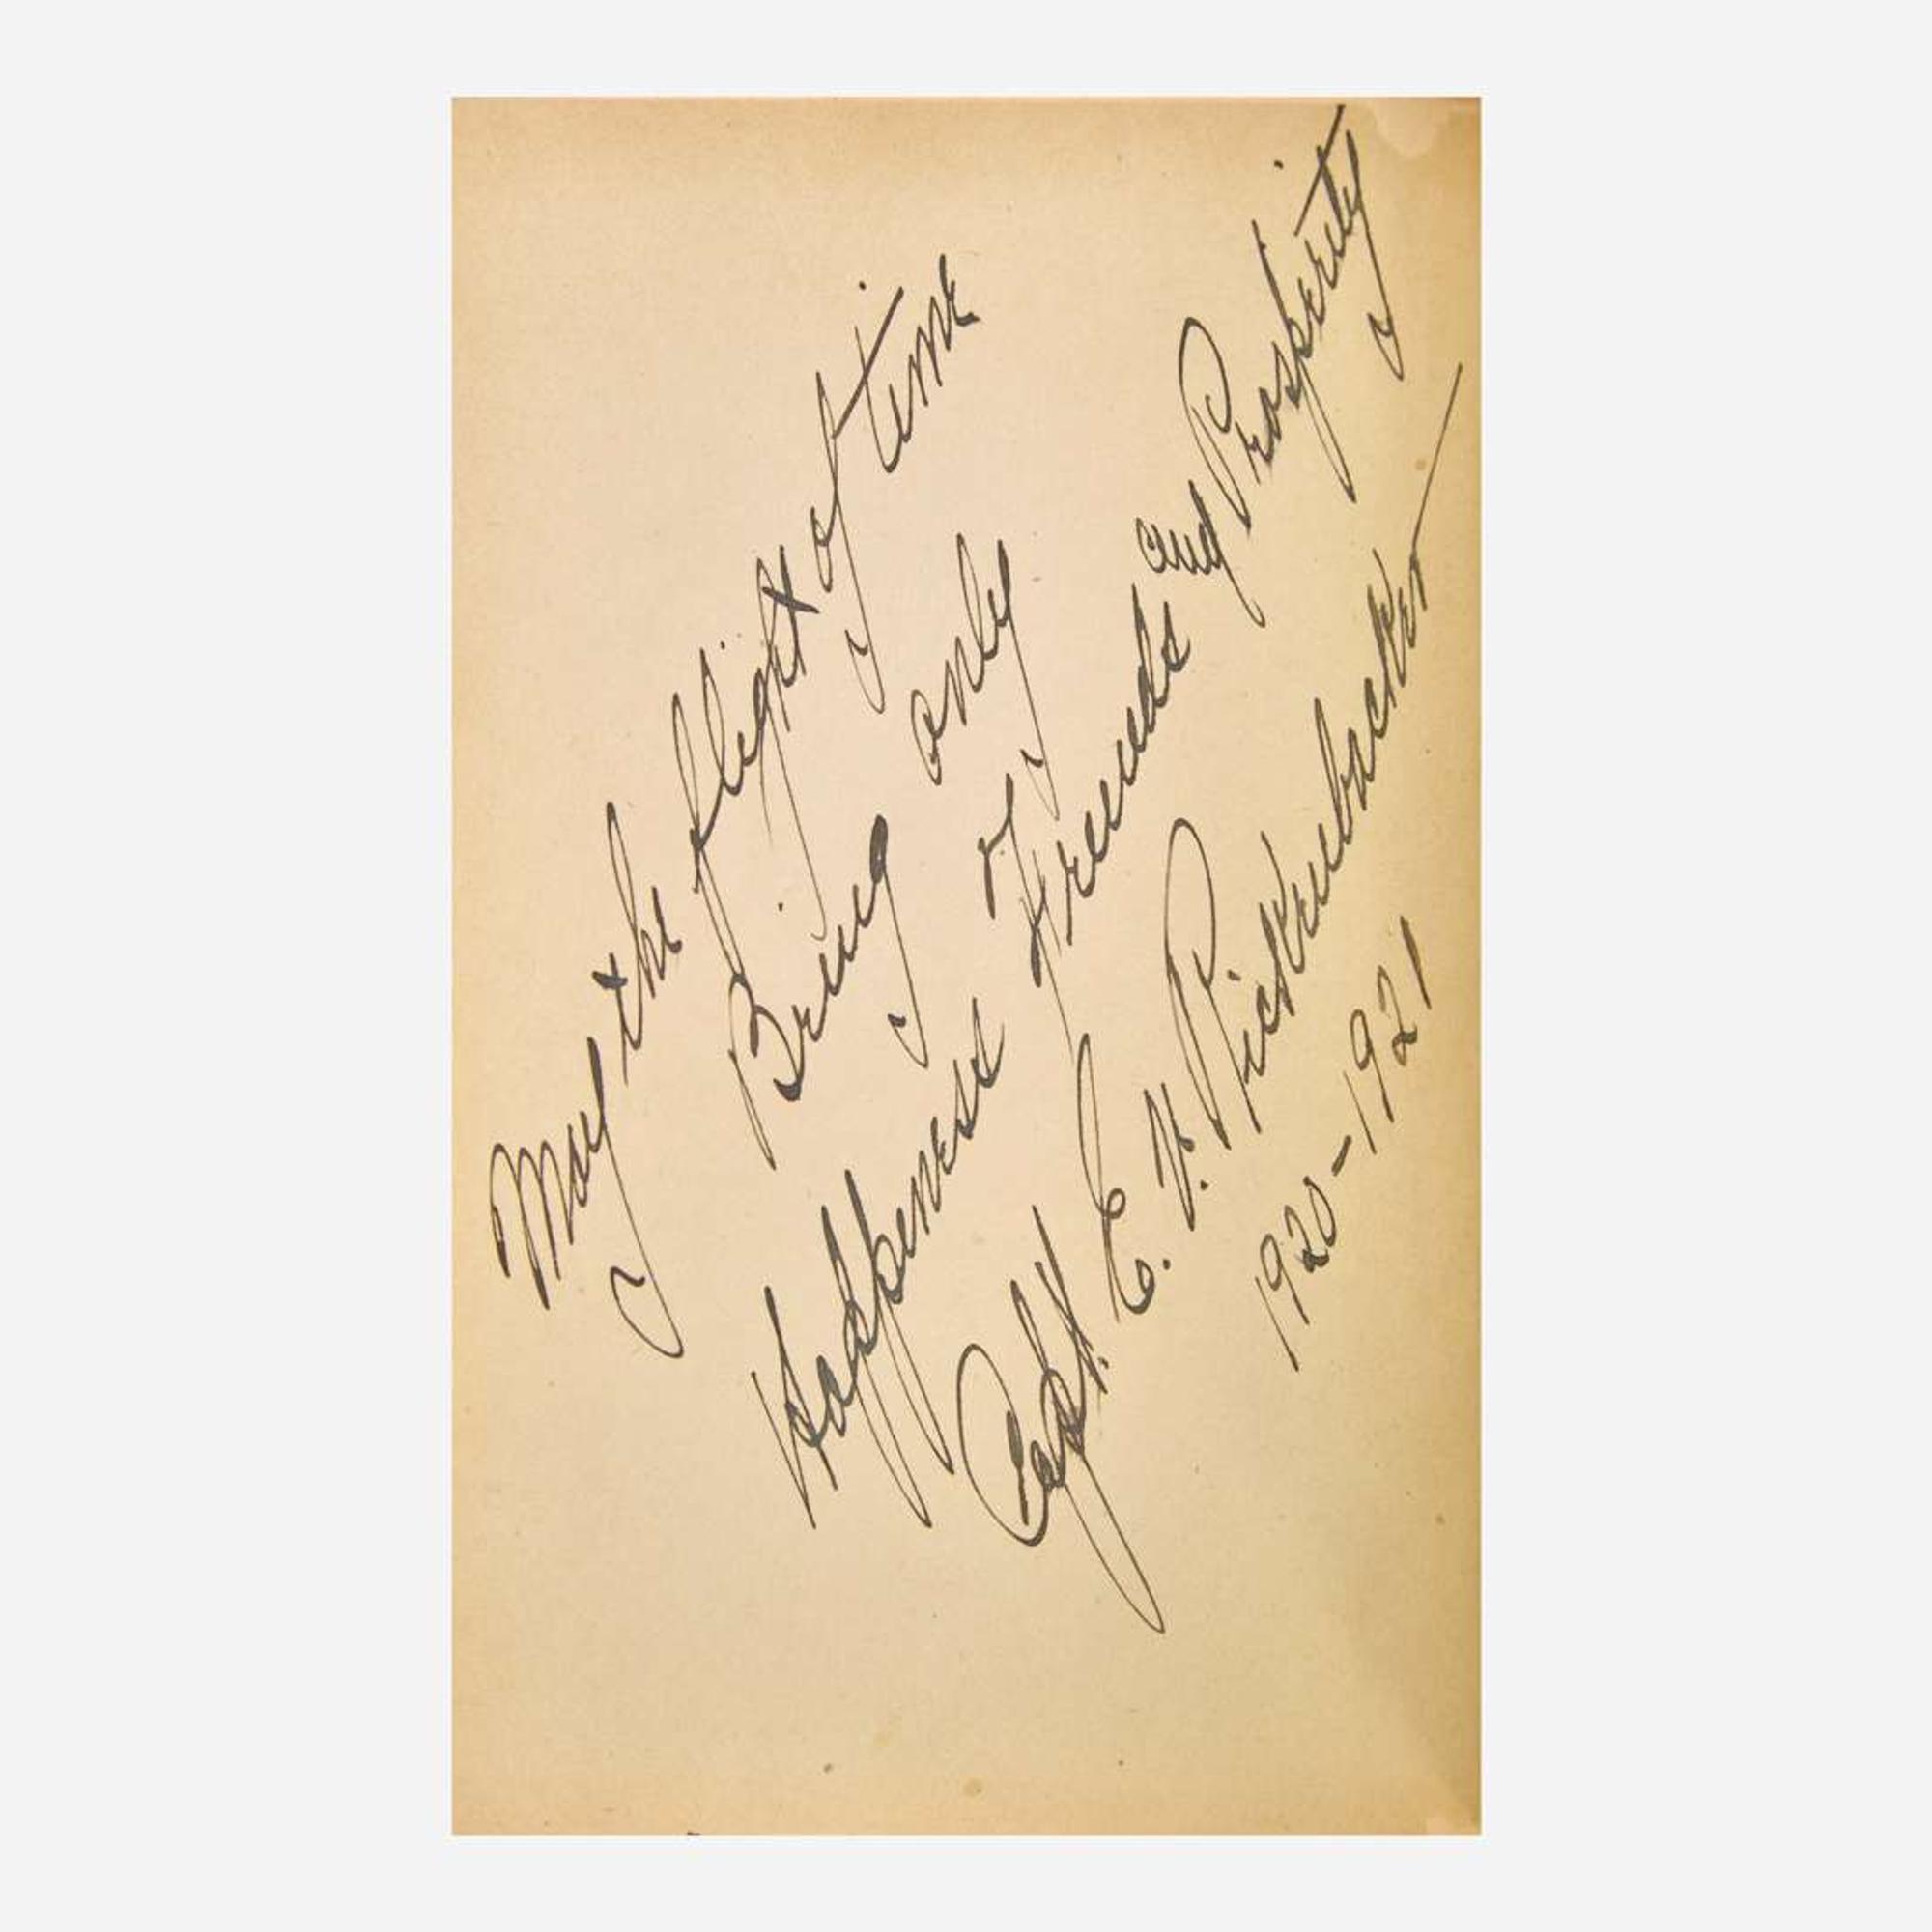 May the flight of time
Bring only
Happiness Friends and Prosperity
Capt. E. V. Rickenbacker
1920-1921